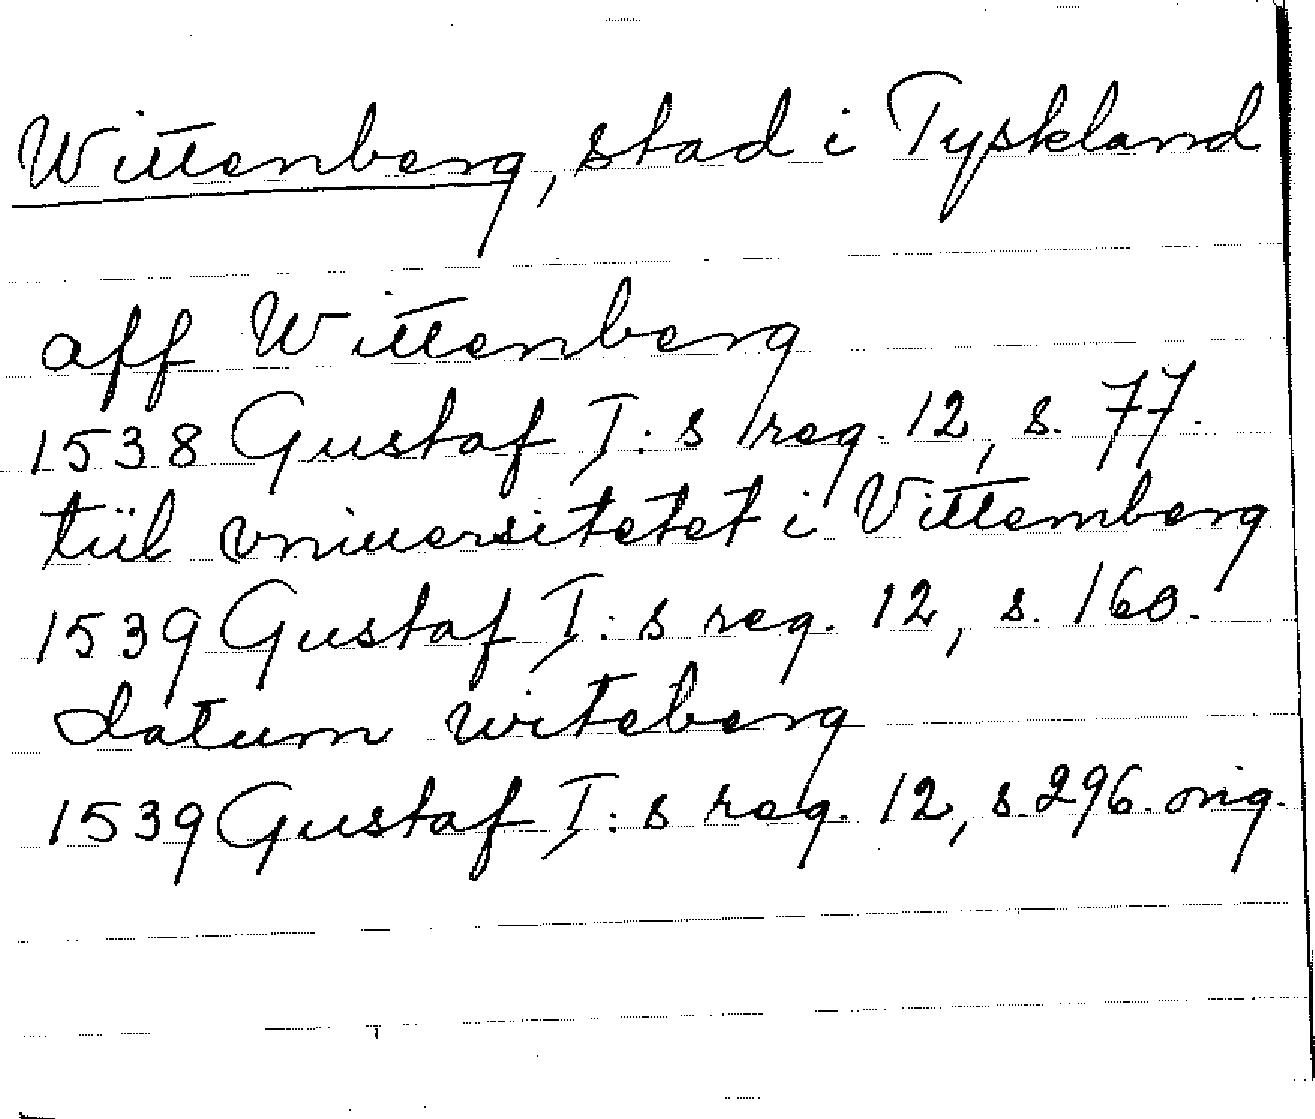 Wittenberg, stad i Tyskland
aff Wittenberg
1538 Gustaf I:s reg. 12, s. 77.
tiil vniuersitetet i Vittemberg
1539 Gustaf I:s reg. 12, s. 160.
datum witeberg
1539 Gustaf I:s reg. 12, s. 296. orig.